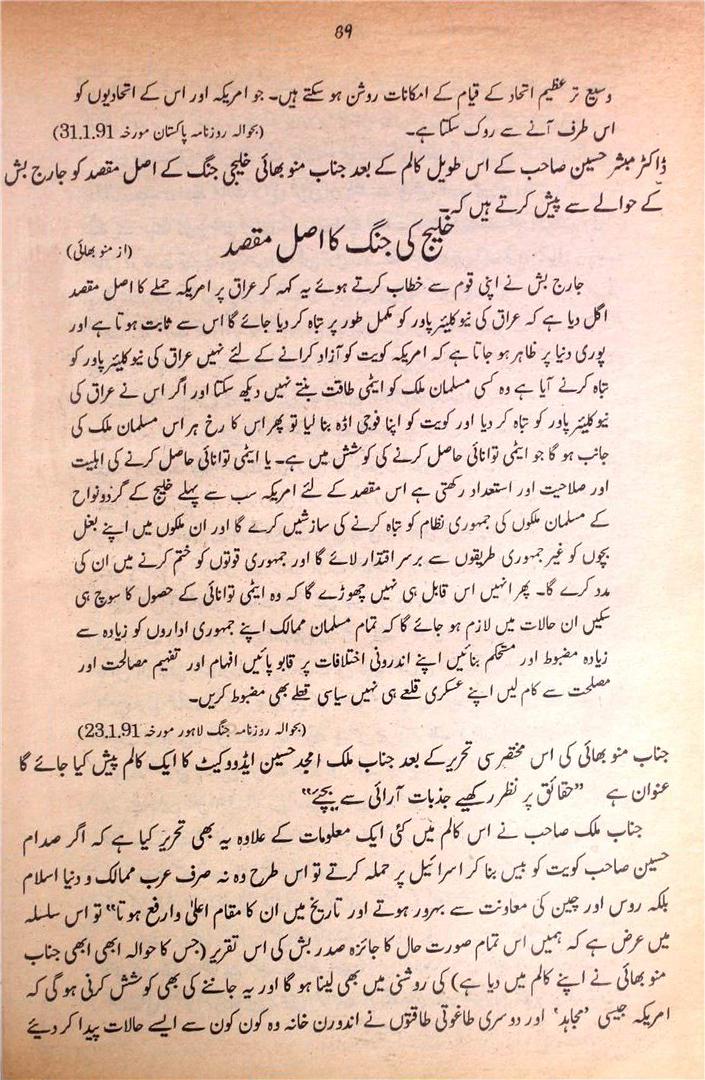 89
وسیع تر عظیم اتحاد کے قیام کے امکانات روشن ہو سکتے ہیں۔ جو امریکہ اور اس کے اتحادیوں کو
اس طرف آنے سے روک سکتا ہے۔ (بحوالہ روزنامہ پاکستان مورخہ 31.1.91)
ڈاکٹر مبشر حسین صاحب کے اس طویل کالم کے بعد جناب منو بھائی خلیجی جنگ کے اصل مقصد کو جارج بش
کے حوالے سے پیش کرتے ہیں کہ۔
خلیج کی جنگ کا اصل مقصد (از منو بھائی)
جارج بش نے اپنی قوم سے خطاب کرتے ہوئے یہ کہہ کر عراق پر امریکہ حملے کا اصل مقصد
اگل دیا ہے کہ عراق کی نیوکلیئر پاور کو مکمل طور پر تباہ کر دیا جائے گا اس سے ثابت ہوتا ہے اور
پوری دنیا پر ظاہر ہو جاتا ہے کہ امریکہ کویت کو آزاد کرانے کے لئے نہیں عراق کی نیوکلیئر پاور کو
تباہ کرنے آیا ہے وہ کسی مسلمان ملک کو ایٹمی طاقت بنتے نہیں دیکھ سکتا اور اگر اس نے عراق کی
نیوکلیئر پاور کو تباہ کر دیا اور کویت کو اپنا فوجی اڈہ بنا لیا تو پھر اس کا رخ ہر اس مسلمان ملک کی
جانب ہو گا جو ایٹمی توانائی حاصل کرنے کی کوشش میں ہے۔ یا ایٹمی توانائی حاصل کرنے کی اہلیت
اور صلاحیت اور استعداد رکھتی ہے اس مقصد کے لئے امریکہ سب سے پہلے خلیج کے گردونواح
کے مسلمان ملکوں کی جمہوری نظام کو تباہ کرنے کی سازشیں کرے گا اور ان ملکوں میں اپنے بغل
بچوں کو غیر جمہوری طریقوں سے برسر اقتدار لائے گا اور جمہوری قوتوں کو ختم کرنے میں ان کی
مدد کرے گا۔ پھر انہیں اس قابل ہی نہیں چھوڑے گا کہ وہ ایٹمی توانائی کے حصول کا سوچ ہی
سکیں ان حالات میں لازم ہو جائے گا کہ تمام مسلمان ممالک اپنے جمہوری اداروں کو زیادہ سے
زیادہ مضبوط اور مستحکم بنائیں اپنے اندرونی اختلافات پر قابو پائیں افہام اور تفہیم مصالحت اور
مصلحت سے کام لیں اپنے عسکری قلعے ہی نہیں سیاسی قلعے بھی مضبوط کریں۔
(بحوالہ روزنامہ جنگ لاہور مورخہ 23.1.91)
جناب منو بھائی کی اس مختصر سی تحریر کے بعد جناب ملک امجد حسین ایڈووکیٹ کا ایک کالم پیش کیا جائے گا
عنوان ہے ”حقائق پر نظر رکھیے جذبات آرائی سے بچئے“
جناب ملک صاحب نے اس کالم میں کئی ایک معلومات کے علاوہ یہ بھی تحریر کیا ہے کہ اگر صدام
حسین صاحب کویت کو بیس بنا کر اسرائیل پر حملہ کرتے تو اس طرح وہ نہ صرف عرب ممالک و دنیا اسلام
بلکہ روس اور چین کی معاونت سے بہرور ہوتے اور تاریخ میں ان کا مقام اعلیٰ وارفع ہوتا“ تو اس سلسلہ
میں عرض ہے کہ ہمیں اس تمام صورت حال کا جائزہ صدر بش کی اس تقریر (جس کا حوالہ ابھی ابھی جناب
منو بھائی نے اپنے کالم میں دیا ہے) کی روشنی میں بھی لینا ہو گا اور یہ جاننے کی بھی کوشش کرنی ہو گی کہ
امریکہ جیسی ’مجاہد‘ اور دوسری طاغوتی طاقتوں نے اندرون خانہ وہ کون کون سے ایسے حالات پیدا کر دیئے